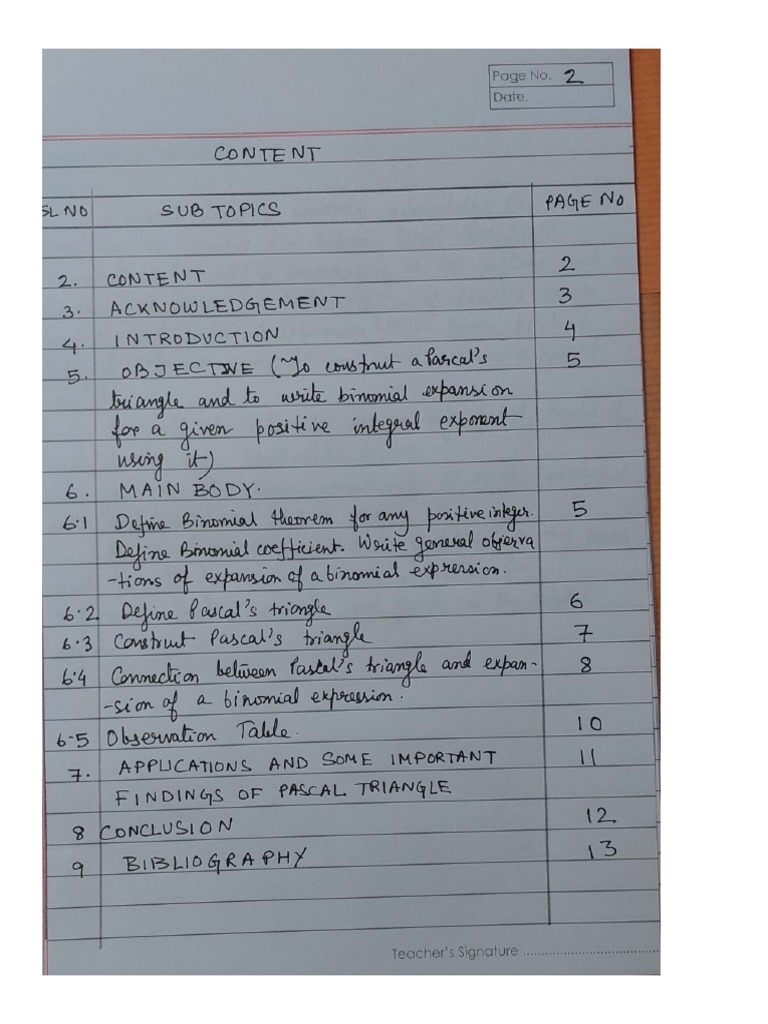 Page No. 2
Date.
CONTENT
SL NO SUB TOPICS PAGE NO
2. CONTENT 2
3. ACKNOWLEDGEMENT 3
4. INTRODUCTION 4
5. OBJECTIVE (To construct a Pascal's 5
triangle and to write binomial expansion
for a given positive integral exponent
using it)
6. MAIN BODY.
6.1 Define Binomial theorem for any positive integer. 5
Define Binomial coefficient. Write general observa
-tions of expansion of a binomial expression.
6.2 Define Pascal's triangle 6
6.3 Construct Pascal's triangle 7
6.4 Connection between Pascal's triangle and expan- 8
-sion of a binomial expression.
6.5 Observation Table. 10
7. APPLICATIONS AND SOME IMPORTANT 11
FINDINGS OF PASCAL TRIANGLE
8 CONCLUSION 12
9 BIBLIOGRAPHY 13
Teacher's Signature